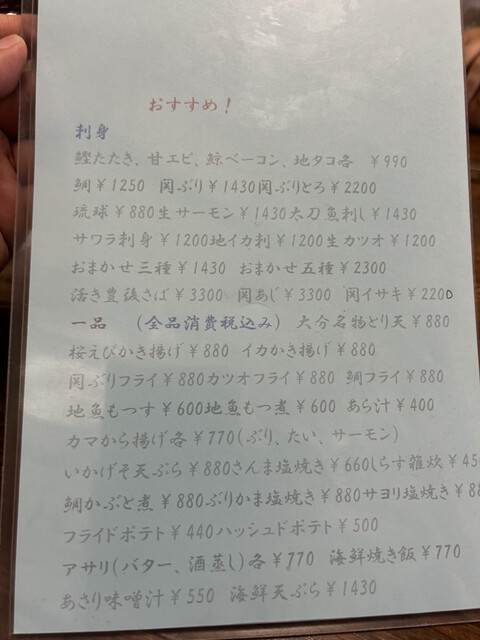 おすすめ！
刺身
鰹たたき、甘エビ、鯨ベーコン、地タコ各 ￥990
鯛￥1250 関ぶり￥1430関ぶりとろ￥2200
琉球￥880生サーモン￥1430太刀魚刺し￥1430
サワラ刺身￥1200地イカ刺￥1200生カツオ￥1200
おまかせ三種￥1430 おまかせ五種￥2300
活き豊後さば￥3300 関あじ￥3300 関イサキ￥2200
一品 （全品消費税込み） 大分名物とり天￥880
桜えびかき揚げ￥880 イカかき揚げ￥880
関ぶりフライ￥880カツオフライ￥880 鯛フライ￥880
地魚もつす￥600地魚もつ煮￥600 あら汁￥400
カマから揚げ各￥770（ぶり、たい、サーモン）
いかげそ天ぷら￥880さんま塩焼き￥660しらす雑炊￥450
鯛かぶと煮￥880ぶりかま塩焼き￥880サヨリ塩焼き￥88
フライドポテト￥440ハッシュドポテト￥500
アサリ（バター、酒蒸し）各￥770 海鮮焼き飯￥770
あさり味噌汁￥550 海鮮天ぷら￥1430